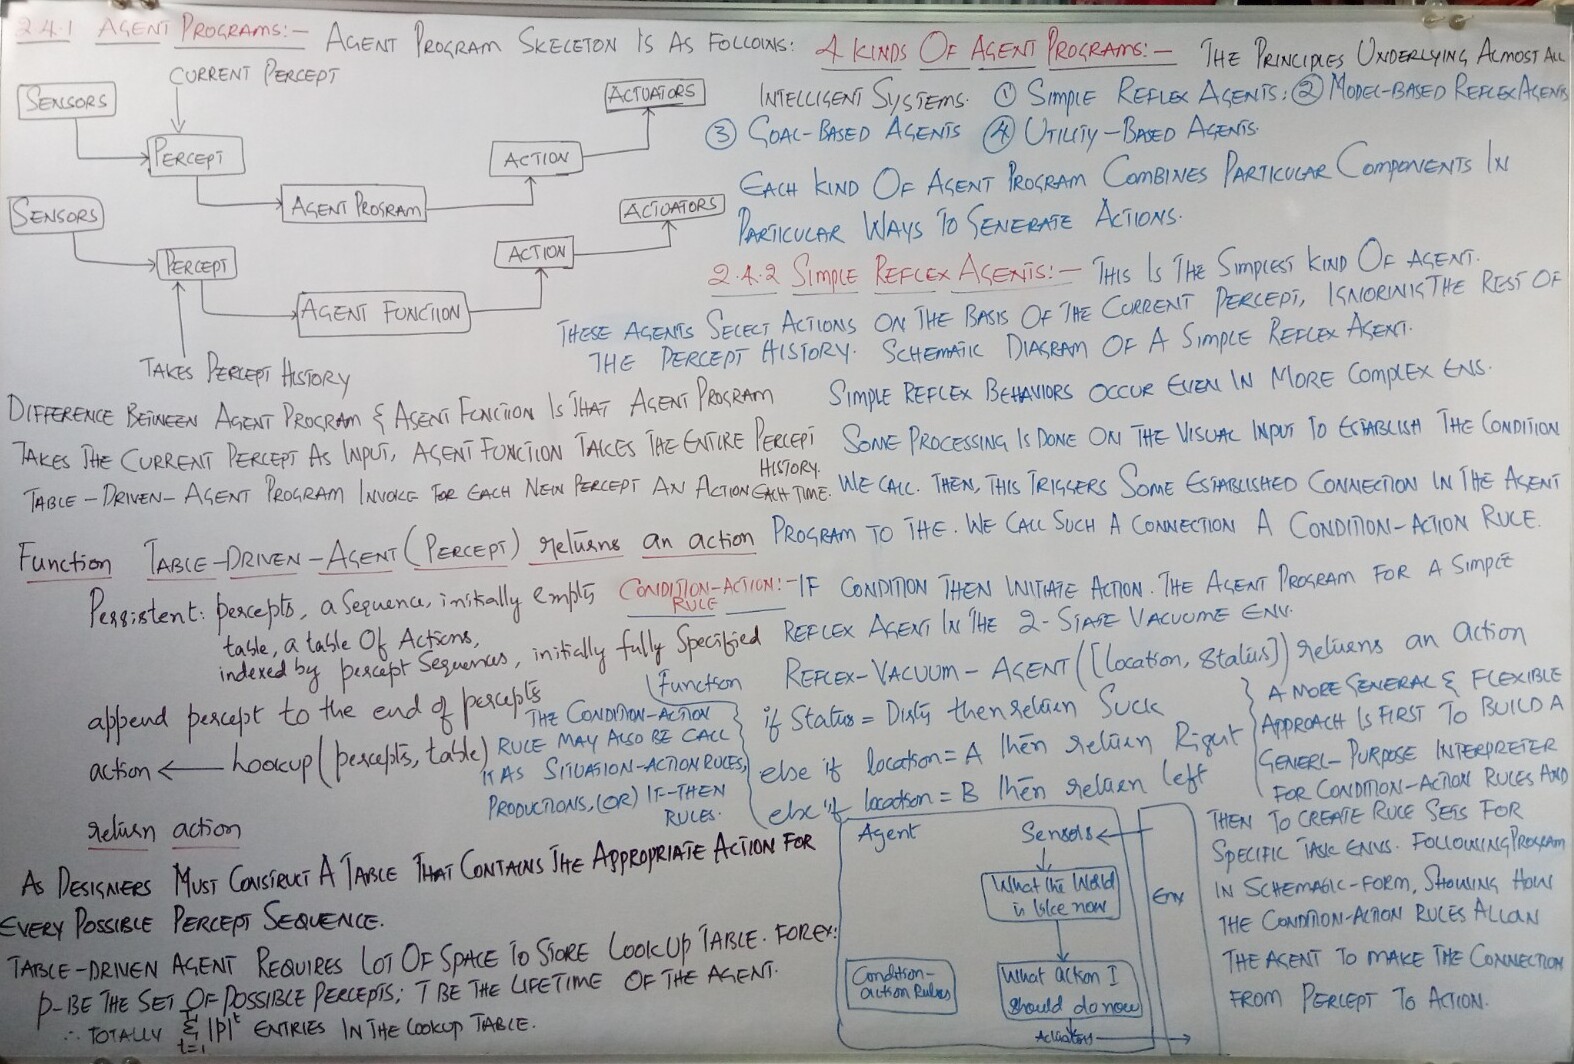 2.4.1 AGENT PROGRAMS:- AGENT PROGRAM SKELETON IS AS FOLLOWS:
CURRENT PERCEPT
SENSORS
PERCEPT
AGENT PROGRAM
ACTION
ACTUATORS
SENSORS
PERCEPT
AGENT FUNCTION
ACTION
ACTUATORS
TAKES PERCEPT HISTORY
DIFFERENCE BETWEEN AGENT PROGRAM & AGENT FUNCTION IS THAT AGENT PROGRAM
TAKES THE CURRENT PERCEPT AS INPUT, AGENT FUNCTION TAKES THE ENTIRE PERCEPT
HISTORY.
TABLE-DRIVEN-AGENT PROGRAM INVOKE FOR EACH NEW PERCEPT AN ACTION EACH TIME.
Function TABLE-DRIVEN-AGENT(PERCEPT) returns an action
Persistent: percepts, a Sequence, initially empty
table, a table Of Actions,
indexed by percept Sequences, initially fully Specified
append percept to the end of percepts
action ← Lookup(percepts, table)
return action
AS DESIGNERS MUST CONSTRUCT A TABLE THAT CONTAINS THE APPROPRIATE ACTION FOR
EVERY POSSIBLE PERCEPT SEQUENCE.
TABLE-DRIVEN AGENT REQUIRES LOT OF SPACE TO STORE LOOKUP TABLE. FOREX:
P-BE THE SET OF POSSIBLE PERCEPTS; T BE THE LIFETIME OF THE AGENT.
∴ TOTALLY Σ |P|^t ENTRIES IN THE LOOKUP TABLE.
t=1
4 KINDS OF AGENT PROGRAMS:- THE PRINCIPLES UNDERLYING ALMOST ALL
INTELLIGENT SYSTEMS. ① SIMPLE REFLEX AGENTS: ② MODEL-BASED REFLEX AGENTS
③ GOAL-BASED AGENTS ④ UTILITY-BASED AGENTS.
EACH KIND OF AGENT PROGRAM COMBINES PARTICULAR COMPONENTS IN
PARTICULAR WAYS TO GENERATE ACTIONS.
2.4.2 SIMPLE REFLEX AGENTS:- THIS IS THE SIMPLEST KIND OF AGENT.
THESE AGENTS SELECT ACTIONS ON THE BASIS OF THE CURRENT PERCEPT, IGNORING THE REST OF
THE PERCEPT HISTORY. SCHEMATIC DIAGRAM OF A SIMPLE REFLEX AGENT.
SIMPLE REFLEX BEHAVIORS OCCUR EVEN IN MORE COMPLEX ENS.
SOME PROCESSING IS DONE ON THE VISUAL INPUT TO ESTABLISH THE CONDITION
WE CALL. THEN, THIS TRIGGERS SOME ESTABLISHED CONNECTION IN THE AGENT
PROGRAM TO THE. WE CALL SUCH A CONNECTION A CONDITION-ACTION RULE.
CONDITION-ACTION:- IF CONDITION THEN INITIATE ACTION. THE AGENT PROGRAM FOR A SIMPLE
RULE
REFLEX AGENT IN THE 2-STATE VACUUME ENV.
Function REFLEX-VACUUM-AGENT([location, status]) returns an action
if Status = Dirty then return Suck
else if location = A then return Right
else if location = B then return left
THE CONDITION-ACTION
RULE MAY ALSO BE CALL
IT AS SITUATION-ACTION RULES,
PRODUCTIONS, (OR) IF-THEN
RULES.
A MORE GENERAL & FLEXIBLE
APPROACH IS FIRST TO BUILD A
GENERL-PURPOSE INTERPRETER
FOR CONDITION-ACTION RULES AND
THEN TO CREATE RULE SETS FOR
SPECIFIC TASK ENVS. FOLLOWING PROGRAM
IN SCHEMATIC-FORM, SHOWING HOW
THE CONDITION-ACTION RULES ALLOW
THE AGENT TO MAKE THE CONNECTION
FROM PERCEPT TO ACTION.
Agent
Sensors
What the World
is like now
Env
Condition-
action Rules
What action I
should do now
Actuators